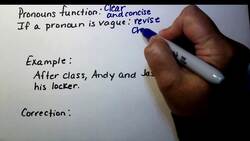 Pronouns function: Clear
and concise
If a pronoun is vague: revise
Example:
After class, Andy and
his locker.
Correction: